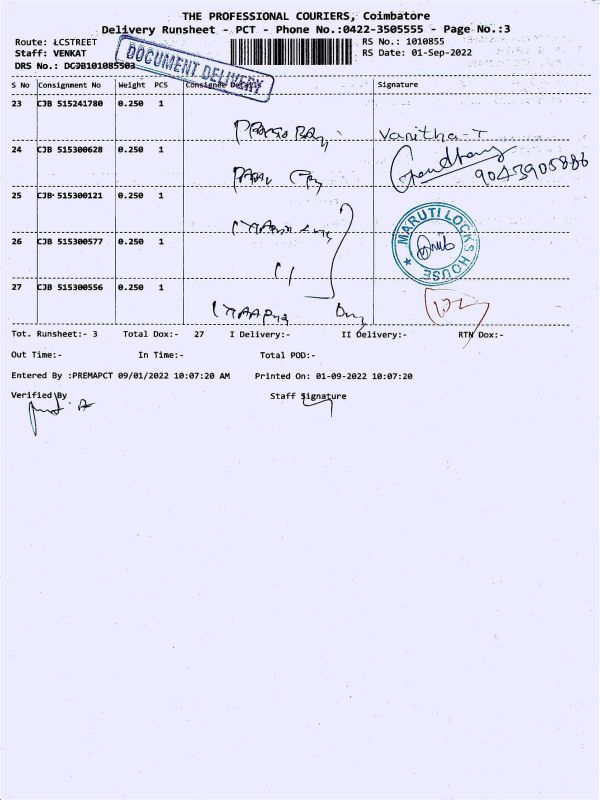 THE PROFESSIONAL COURIERS, Coimbatore
Delivery Runsheet - PCT - Phone No.:0422-3505555 - Page No.:3
Route: LCSTREET
RS No.: 1010855
Staff: VENKAT
RS Date: 01-Sep-2022
DRS No.: DCJB101085503
DOCUMENT DELIVERY
S No Consignment No Weight PCS Consignee Details Signature
23 CJB 515241780 0.250 1
Vanitha-T
24 CJB 515300628 0.250 1
9043905886
25 CJB 515300121 0.250 1
MARUTI LOCKS HOUSE
26 CJB 515300577 0.250 1
27 CJB 515300556 0.250 1
Tot. Runsheet:- 3 Total Dox:- 27 I Delivery:- II Delivery:- RTN Dox:-
Out Time:- In Time:- Total POD:-
Entered By :PREMAPCT 09/01/2022 10:07:20 AM Printed On: 01-09-2022 10:07:20
Verified By Staff Signature